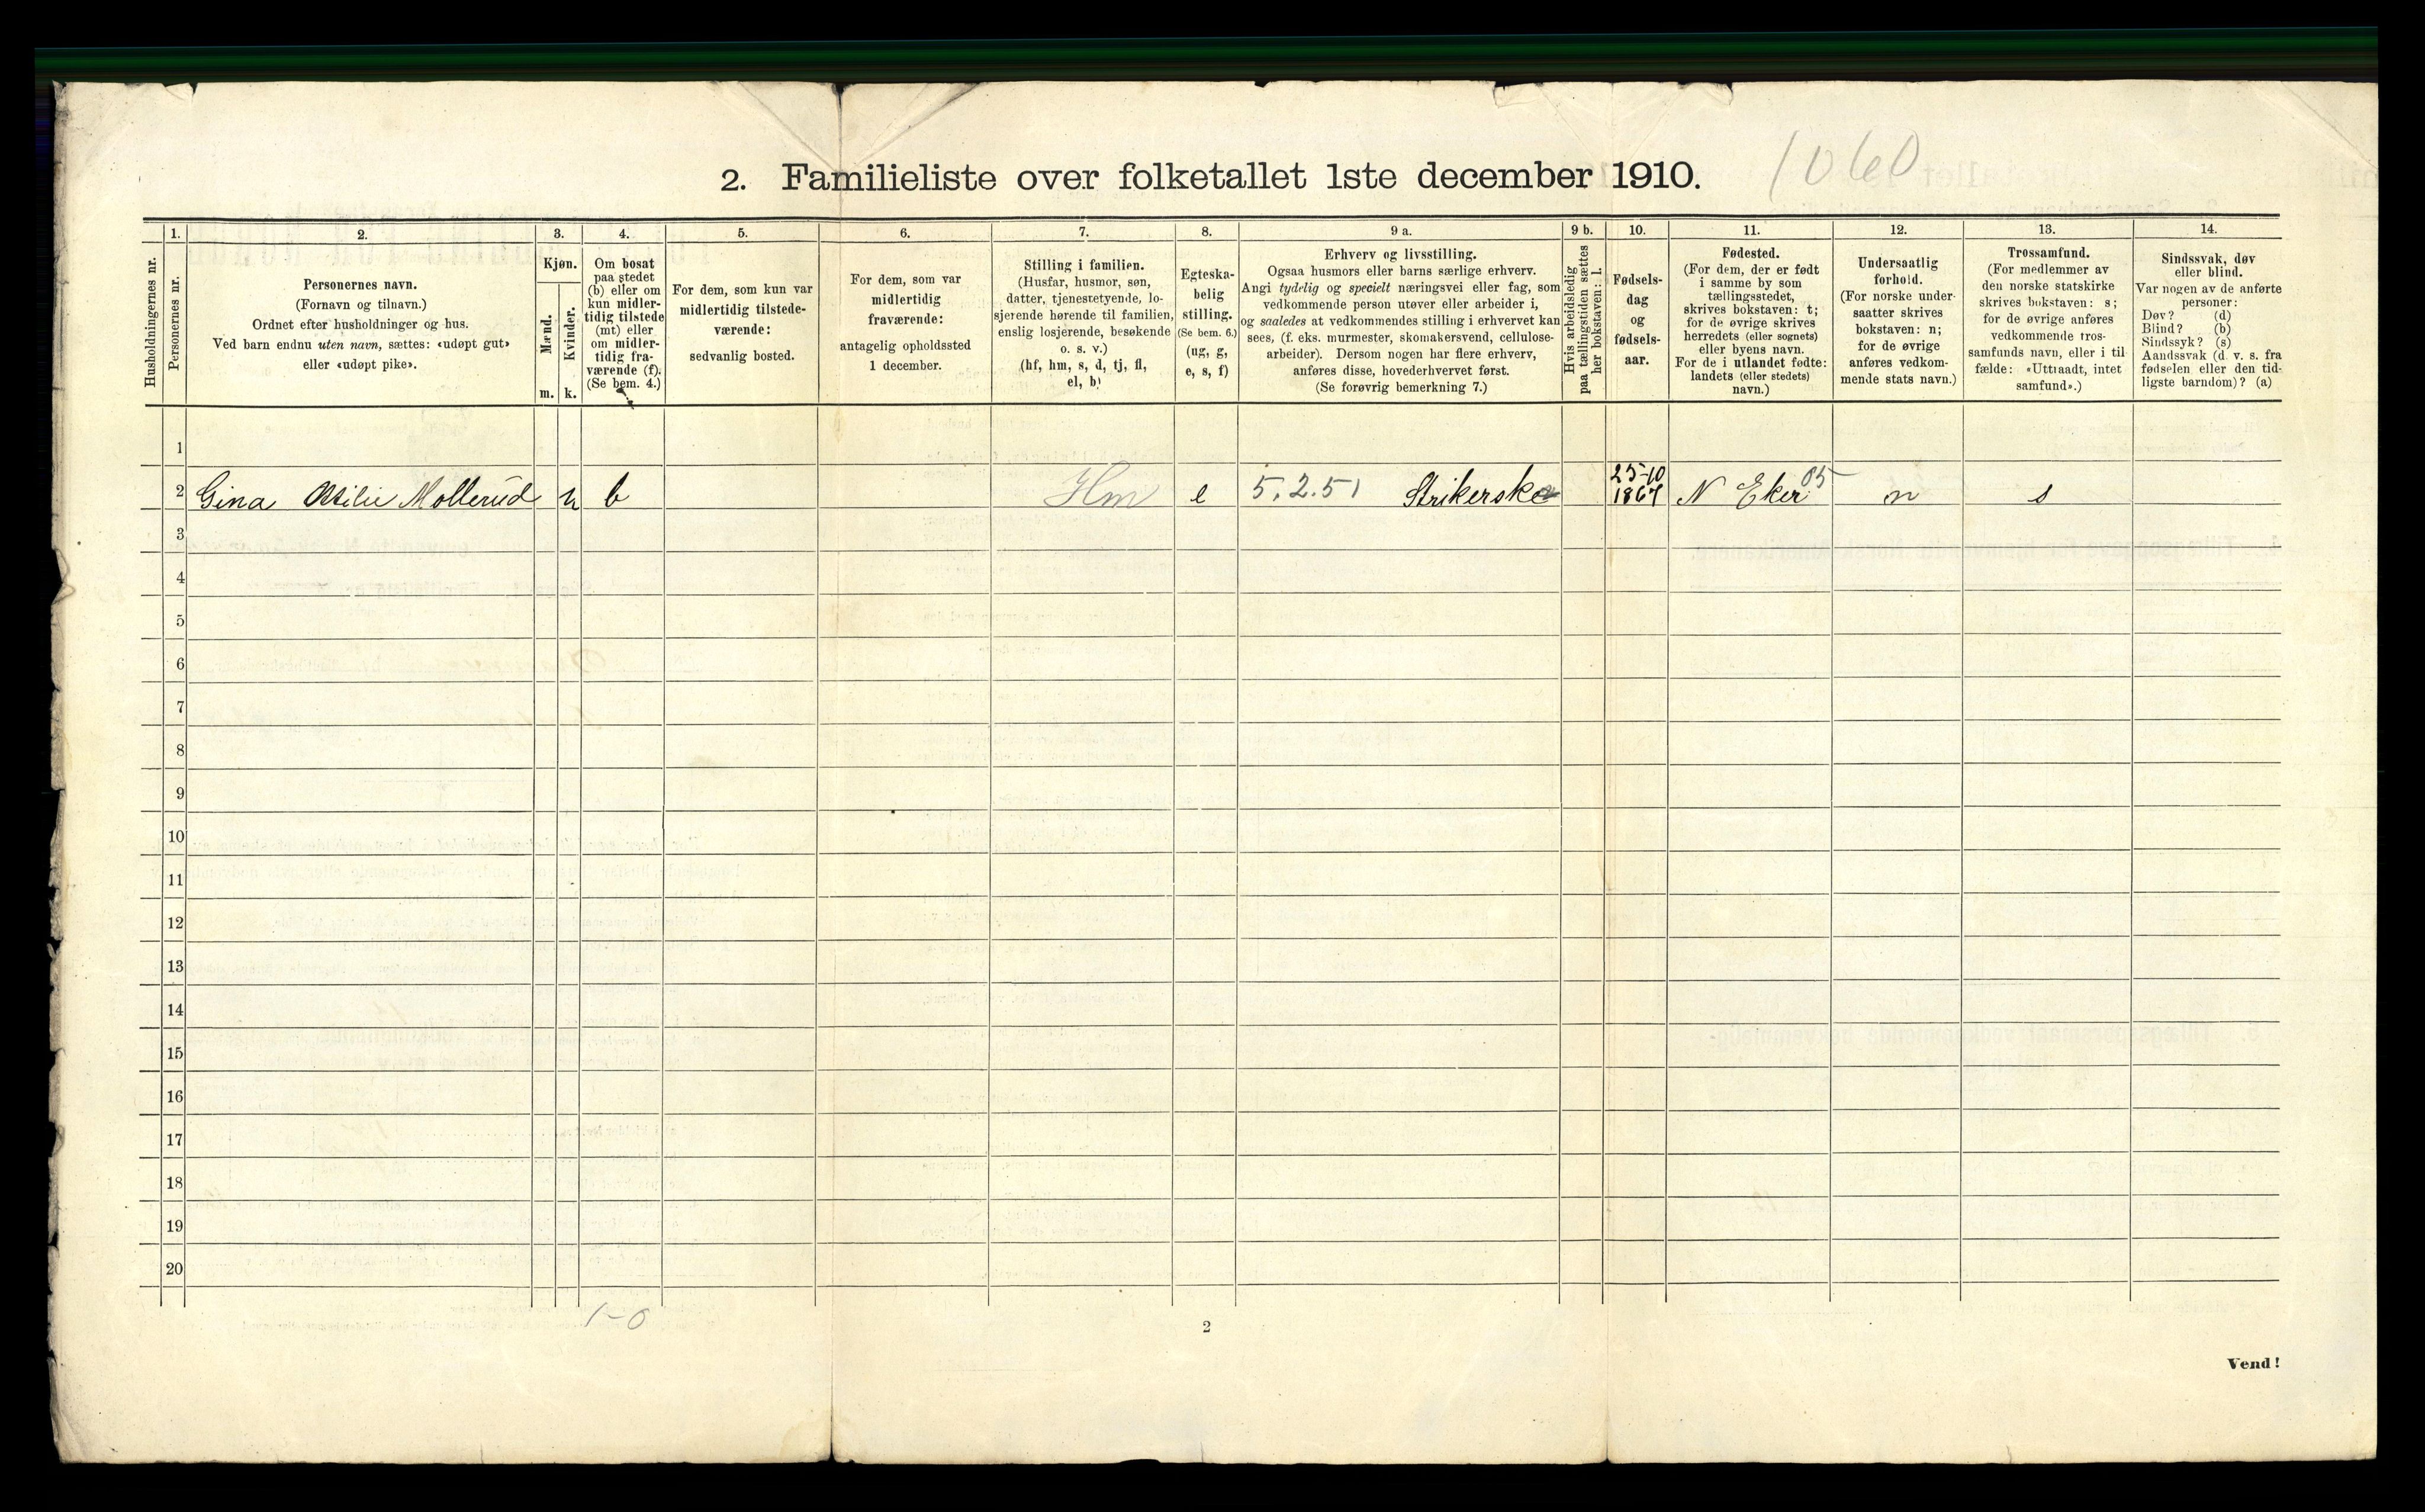 1060
2. Familieliste over folketallet 1ste december 1910.
1. 2. 3. 4. 5. 6. 7. 8. 9 a. 9 b. 10. 11. 12. 13. 14.
Husholdningernes nr.
Personernes nr.
Personernes navn.
(Fornavn og tilnavn.)
Ordnet efter husholdninger og hus.
Ved barn endnu uten navn, sættes: «udøpt gut»
eller «udøpt pike».
Kjøn.
Mænd.
Kvinder.
m. k.
Om bosat
paa stedet
(b) eller om
kun midler-
tidig tilstede
(mt) eller
om midler-
tidig fra-
værende (f).
(Se bem. 4.)
For dem, som kun var
midlertidig tilstede-
værende:
sedvanlig bosted.
For dem, som var
midlertidig
fraværende:
antagelig opholdssted
1 december.
Stilling i familien.
(Husfar, husmor, søn,
datter, tjenestetyende, lo-
sjerende hørende til familien,
enslig losjerende, besøkende
o. s. v.)
(hf, hm, s, d, tj, fl,
el, b)
Egteska-
belig
stilling.
(Se bem. 6.)
(ug, g,
e, s, f)
Erhverv og livsstilling.
Ogsaa husmors eller barns særlige erhverv.
Angi tydelig og specielt næringsvei eller fag, som
vedkommende person utøver eller arbeider i,
og saaledes at vedkommendes stilling i erhvervet kan
sees, (f. eks. murmester, skomakersvend, cellulose-
arbeider). Dersom nogen har flere erhverv,
anføres disse, hovederhvervet først.
(Se forøvrig bemerkning 7.)
Hvis arbeidsledig
paa tællingstiden sættes
her bokstaven: l.
Fødsels-
dag
og
fødsels-
aar.
Fødested.
(For dem, der er født
i samme by som
tællingsstedet,
skrives bokstaven: t;
for de øvrige skrives
herredets (eller sognets)
eller byens navn.
For de i utlandet fødte:
landets (eller stedets)
navn.)
Undersaatlig
forhold.
(For norske under-
saatter skrives
bokstaven: n;
for de øvrige
anføres vedkom-
mende stats navn.)
Trossamfund.
(For medlemmer av
den norske statskirke
skrives bokstaven: s;
for de øvrige anføres
vedkommende tros-
samfunds navn, eller i til-
fælde: «Uttraadt, intet
samfund».)
Sindssvak, døv
eller blind.
Var nogen av de anførte
personer:
Døv? (d)
Blind? (b)
Sindssyk? (s)
Aandssvak (d. v. s. fra
fødselen eller den tid-
ligste barndom)? (a)
1
2 Gina Otilie Mollerud k b Hm e 5.2.51 Strikerske 25-10 1867 N Eker 05 n s
3
4
5
6
7
8
9
10
11
12
13
14
15
16
17
18
19
20
1-0
2
Vend!